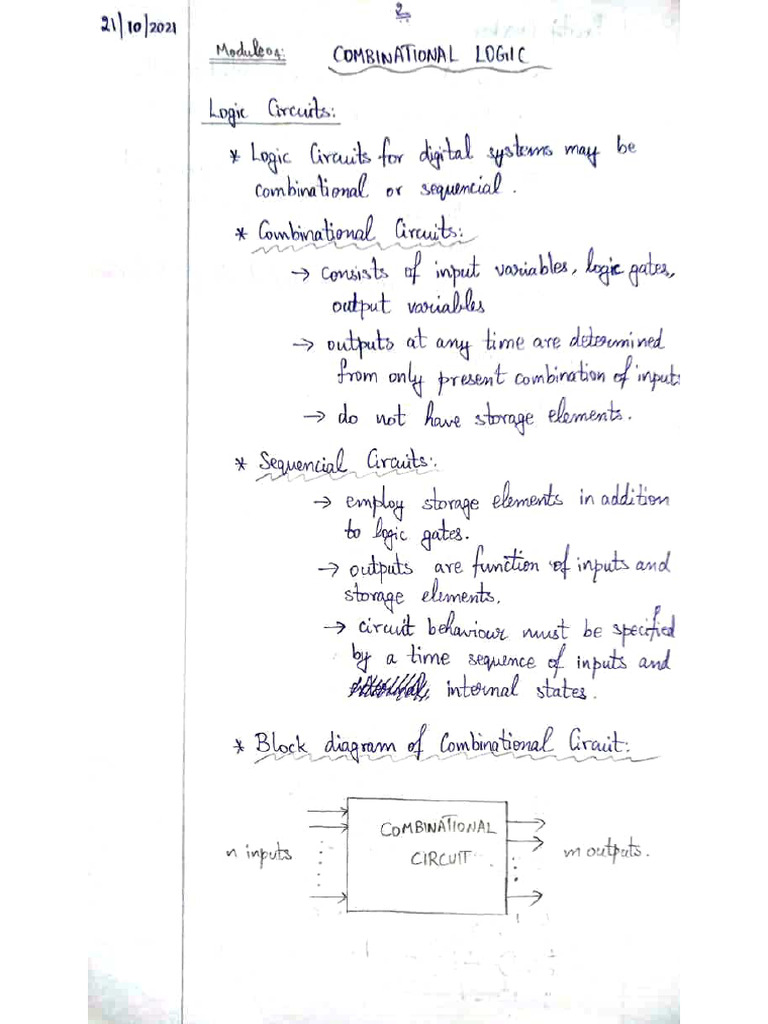 2
21/10/2021
Module 04: COMBINATIONAL LOGIC
Logic Circuits:
* Logic Circuits for digital systems may be
combinational or sequencial.
* Combinational Circuits:
→ consists of input variables, logic gates,
output variables
→ outputs at any time are determined
from only present combination of inputs
→ do not have storage elements.
* Sequencial Circuits:
→ employ storage elements in addition
to logic gates.
→ outputs are function of inputs and
storage elements.
→ circuit behaviour must be specified
by a time sequence of inputs and
internal states.
* Block diagram of Combinational Circuit:
n inputs
COMBINATIONAL
CIRCUIT
m outputs.